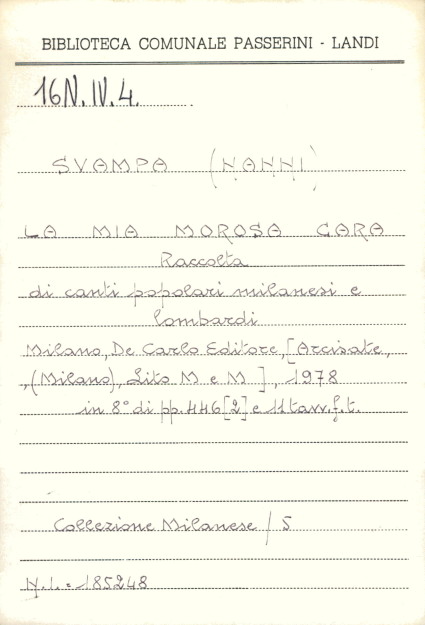 BIBLIOTECA COMUNALE PASSERINI - LANDI
16N.IV.4.
SVAMPA (NANNI)
LA MIA MOROSA CARA
Raccolta
di canti popolari milanesi e
lombardi
Milano, De Carlo Editore, [Arcisate,
(Milano), Lito M e M ], 1978
in 8° di pp. 446 [2] e 11 tavv. f. t.
Collezione Milanese / 5
N.I. = 185248